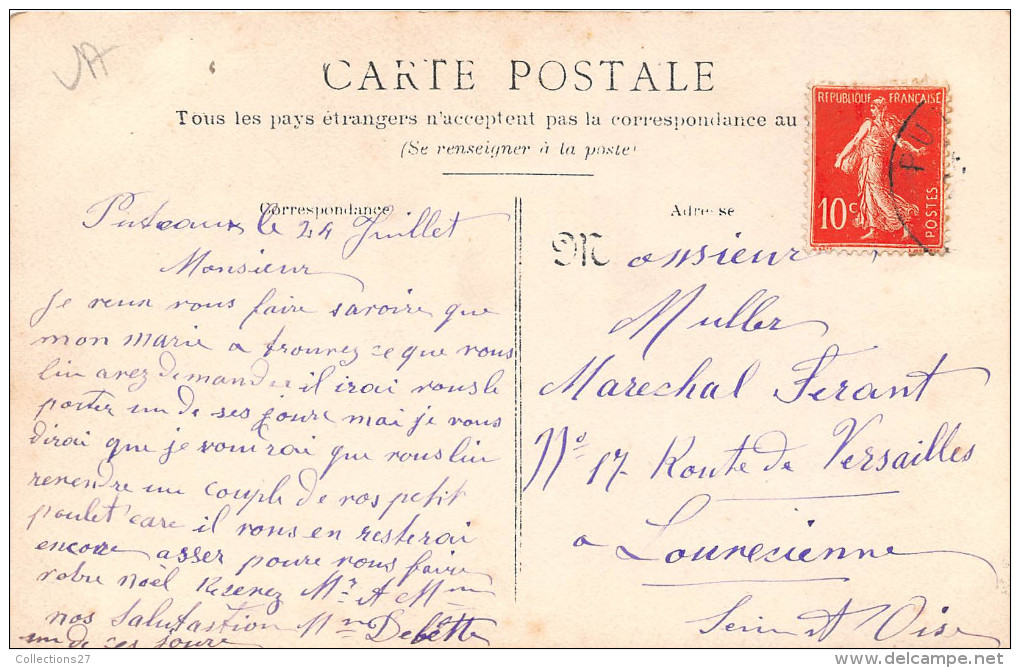 CARTE POSTALE
Tous les pays étrangers n'acceptent pas la correspondance au
(Se renseigner à la poste
REPUBLIQUE FRANÇAISE
10c
POSTES
PU
Correspondance
Adresse
Puteaux le 24 Juillet
Monsieur
Je veux vous faire savoire que
mon marie a trouvez ce que vous
lui avez demander il irai vous le
porter un de ses joure mai je vous
dirai que je voudrai que vous lui
revendre un couple de vos petit
poulet care il vous en resterai
encore asser poure vous faire
votre noël Recevez Mr et Mme
nos Salutastion Mme Debette
un de ces joure
Monsieur
Muller
Marechal Ferant
No 17 Route de Versailles
a Louvecienne
Seine et Oise
Collections27
delcampe.net